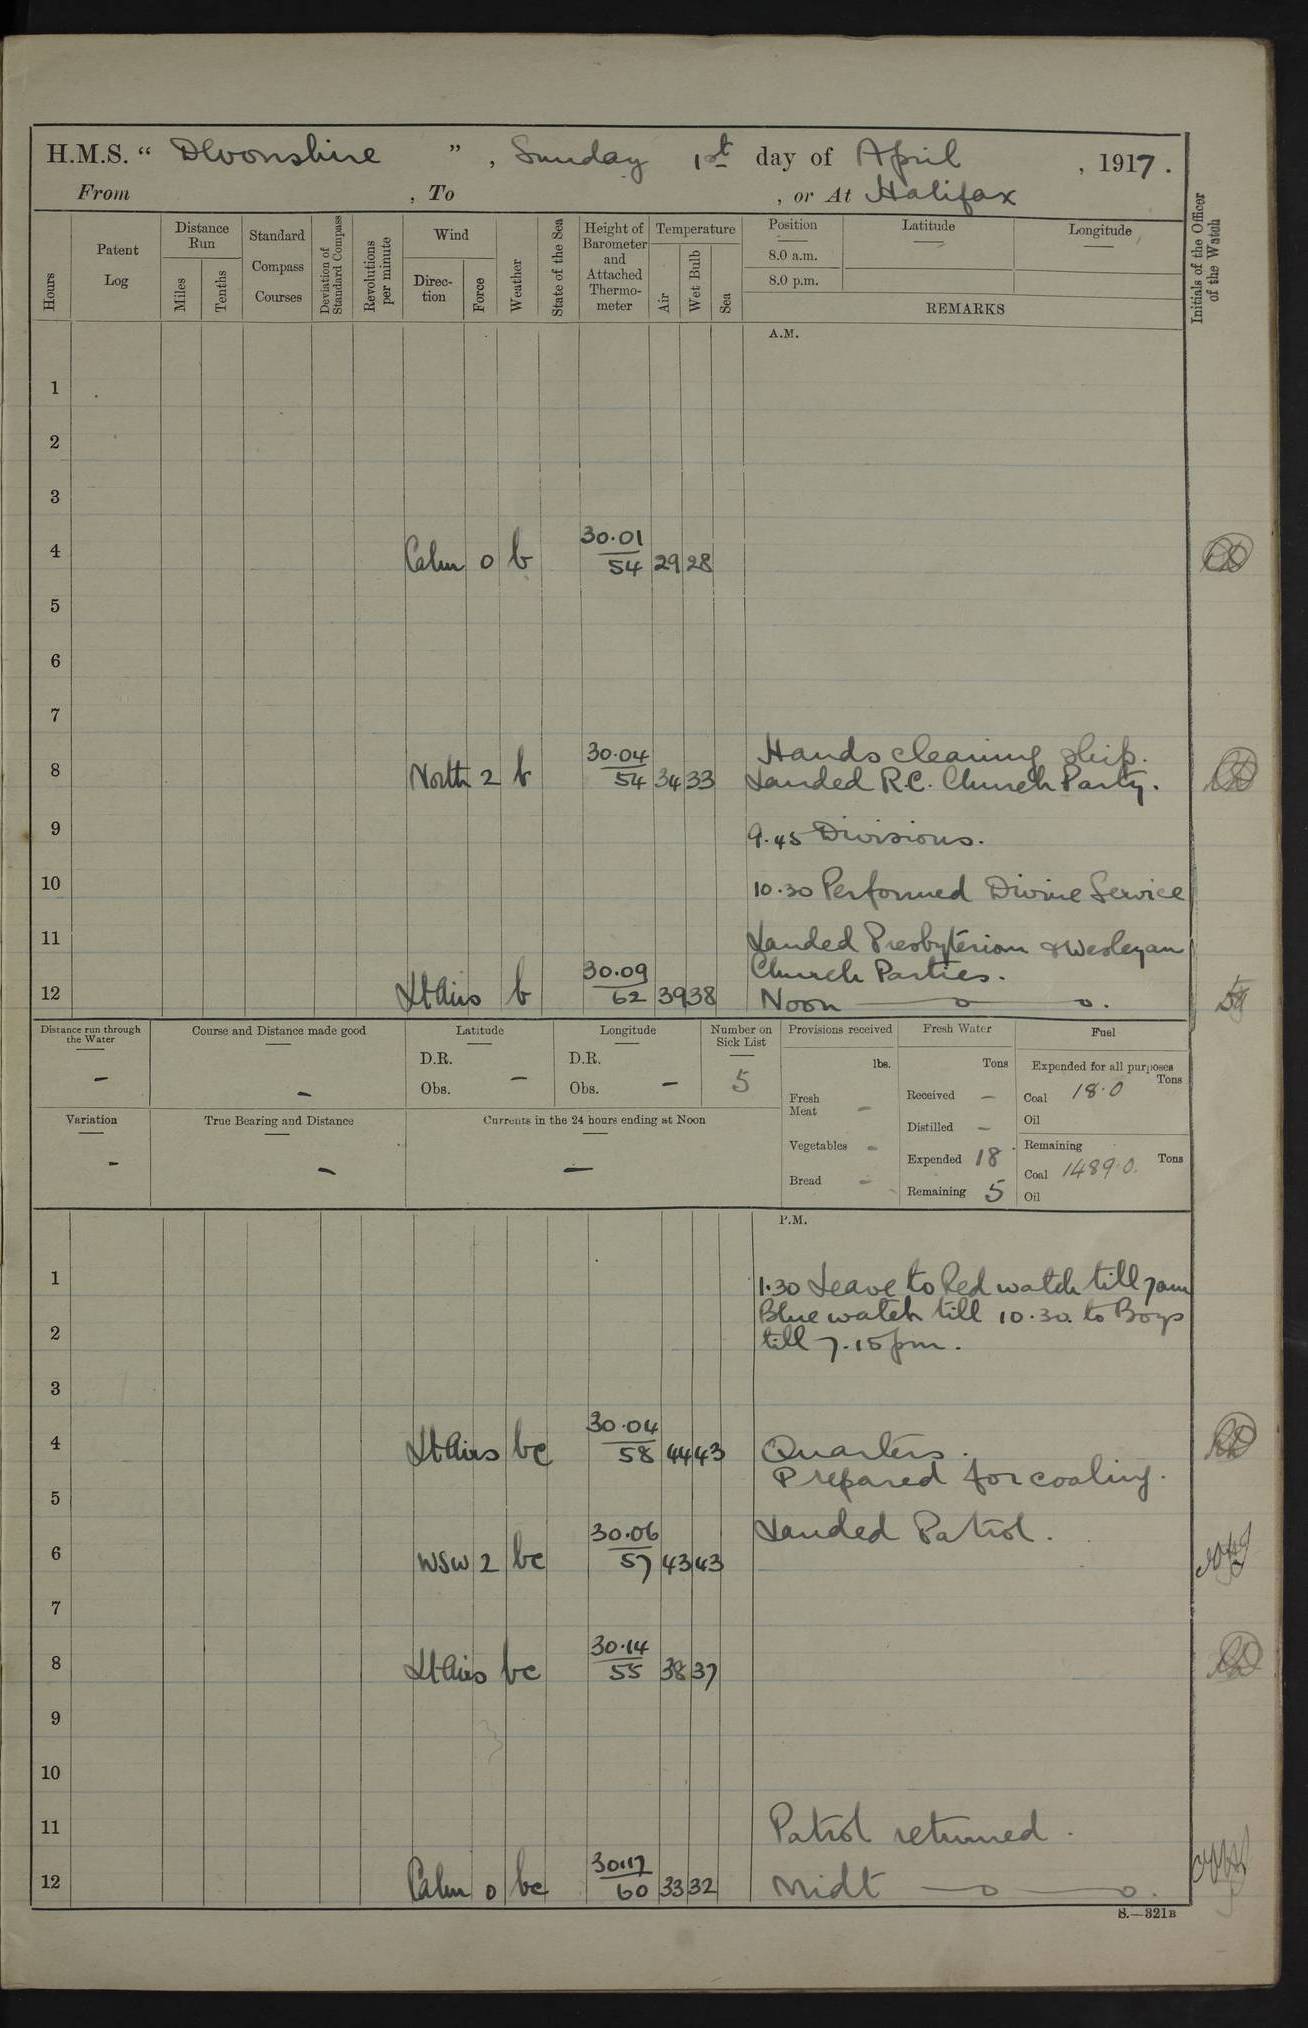 H.M.S. “ Devonshire ” , Sunday 1st day of April , 1917.
From , To , or At Halifax
Hours
Patent Log
Distance Run
Miles
Tenths
Standard Compass Courses
Deviation of Standard Compass
Revolutions per minute
Wind
Direc-tion
Force
Weather
State of the Sea
Height of Barometer and Attached Thermo-meter
Temperature
Air
Wet Bulb
Sea
Position
8.0 a.m.
8.0 p.m.
Latitude
Longitude
REMARKS
Initials of the Officer of the Watch
A.M.
1
2
3
4 Calm 0 b 30.01 54 29 28
5
6
7
Hands cleaning ship.
8 North 2 b 30.04 54 34 33 Landed R.C. Church Party.
9 9.45 Divisions.
10 10.30 Performed Divine Service
11 Landed Presbyterian & Wesleyan
Church Parties.
12 Lt Airs b 30.09 62 39 38 Noon
Distance run through the Water –
Course and Distance made good –
Latitude D.R. Obs. –
Longitude D.R. Obs. –
Number on Sick List 5
Provisions received lbs.
Fresh Meat –
Vegetables –
Bread –
Fresh Water Tons
Received –
Distilled –
Expended 18
Remaining 5
Fuel
Expended for all purposes Tons
Coal 18.0
Oil
Remaining Tons
Coal 1489.0
Oil
Variation –
True Bearing and Distance –
Currents in the 24 hours ending at Noon –
P.M.
1 1.30 Leave to Red watch till 7am
Blue watch till 10.30. to Boys
2 till 7.15pm.
3
4 Lt Airs bc 30.04 58 44 43 Quarters.
Prepared for coaling.
5
Landed Patrol.
6 WSW 2 bc 30.06 57 43 43
7
8 Lt Airs bc 30.14 55 38 37
9
10
11 Patrol returned.
12 Calm 0 bc 30.17 60 33 32 Midt
S.—321B